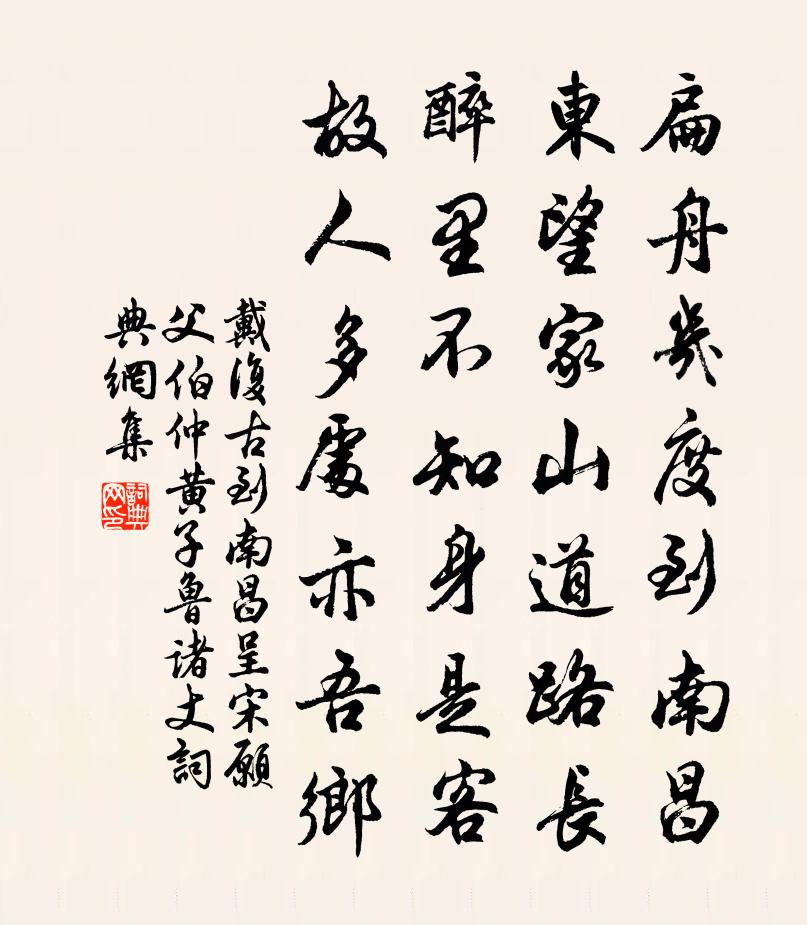 扁舟幾度到南昌
東望家山道路長
醉里不知身是客
故人多處亦吾鄉
戴復古到南昌呈宋願
父伯仲黄子魯诸丈詞
典網集
詞典
网印